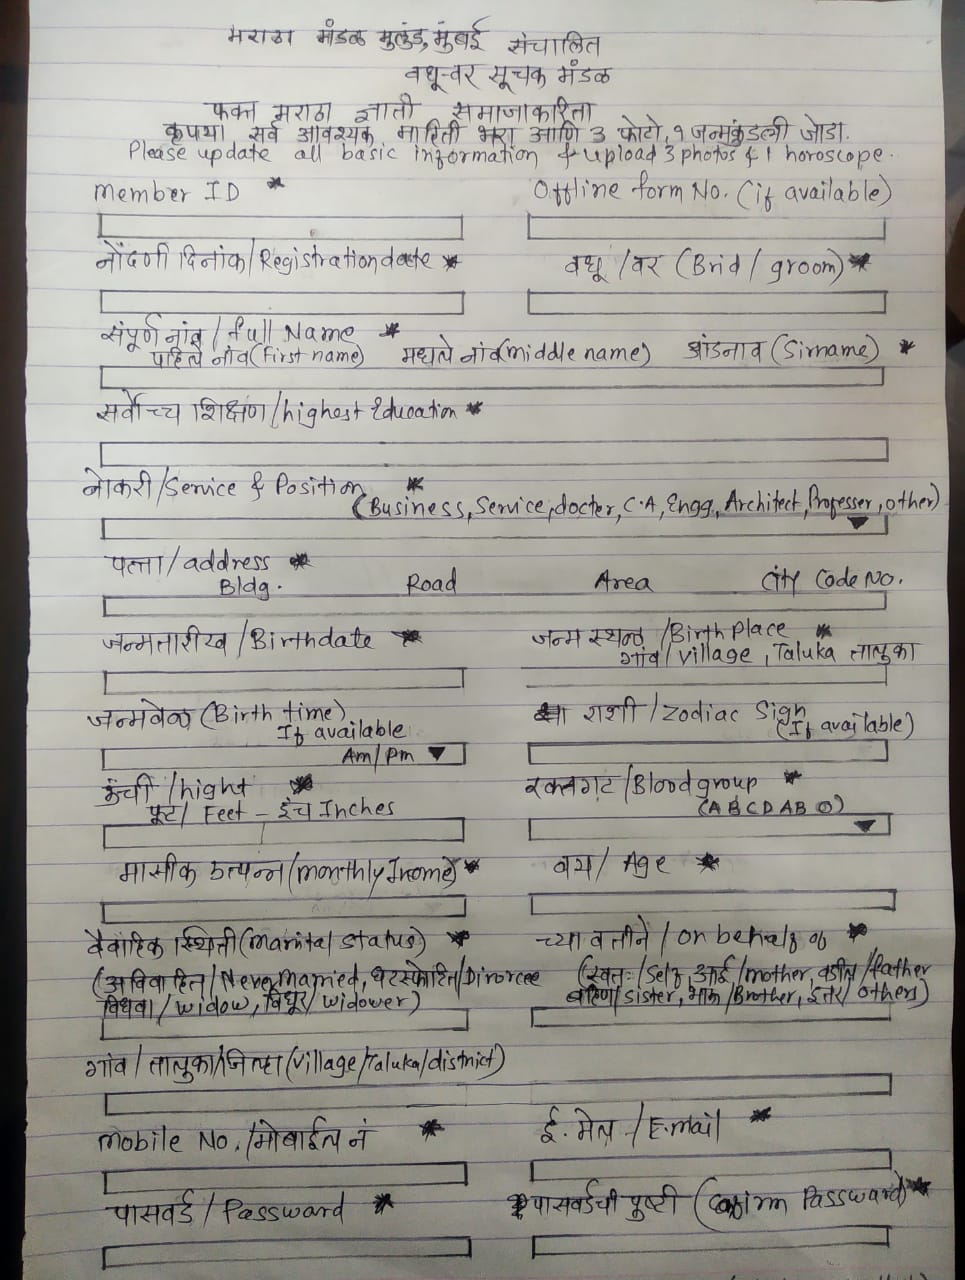 मराठा मंडळ मुलुंड, मुंबई संचालित
वधू-वर सूचक मंडळ
फक्त मराठा ज्ञाती समाजाकरिता
कृपया सर्व आवश्यक माहिती भरा आणि 3 फोटो, १ जन्मकुंडली जोडा.
Please update all basic information & upload 3 photos & 1 horoscope.
member ID * Offline form No. (if available)
नोंदणी दिनांक/Registration date * वधू/वर (Brid/groom) *
संपूर्ण नांव/full Name *
पहिले नांव (First name) मधले नांव (middle name) आंडनाव (Sirname) *
सर्वोच्च शिक्षण/highest Education *
नोकरी/Service & Position *
(Business, Service, docter, C.A, Engg, Architect, Professer, other)
पत्ता/address *
Bldg. Road Area City Code No.
जन्मतारीख/Birthdate * जन्म स्थळ/Birth Place *
गांव/village, Taluka तालुका
जन्मवेळ (Birth time) राशी/Zodiac Sign
If available (If available)
Am/Pm
ऊंची/hight * रक्तगट/Blood group *
फूट/Feet - इंच Inches (A B C D AB O)
मासीक उत्पन्न (monthly Income) * वय/Age *
वैवाहिक स्थिती (Marital status) * च्या वतीने/on behalf of *
(अविवाहित/Never Married, घटस्फोटित/Divorcee (स्वतः/Self, आई/mother, वडील/father
विधवा/widow, विधूर/widower) बहिण/sister, भाऊ/Brother, इतर/others)
गांव/तालुका/जिल्हा (village/Taluka/district)
mobile No./मोबाईल नं * ई. मेल/E.mail *
पासवर्ड/Passward * पासवर्डची पुष्टी (Confirm Passward) *